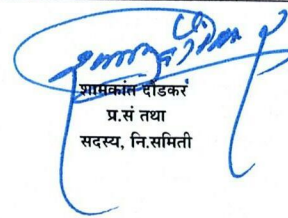 शामकांत दौंडकर
प्र.सं तथा
सदस्य, नि.समिती